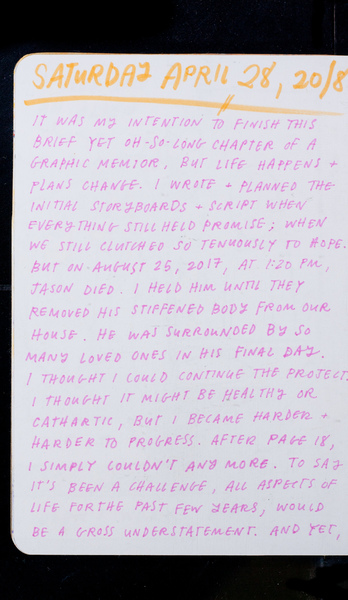 SATURDAY APRIL 28, 2018
IT WAS MY INTENTION TO FINISH THIS
BRIEF YET OH-SO-LONG CHAPTER OF A
GRAPHIC MEMIOR, BUT LIFE HAPPENS +
PLANS CHANGE. I WROTE + PLANNED THE
INITIAL STORYBOARDS + SCRIPT WHEN
EVERYTHING STILL HELD PROMISE; WHEN
WE STILL CLUTCHED SO TENUOUSLY TO HOPE.
BUT ON AUGUST 25, 2017, AT 1:20 PM,
JASON DIED. I HELD HIM UNTIL THEY
REMOVED HIS STIFFENED BODY FROM OUR
HOUSE. HE WAS SURROUNDED BY SO
MANY LOVED ONES IN HIS FINAL DAY.
I THOUGHT I COULD CONTINUE THE PROJECT,
I THOUGHT IT MIGHT BE HEALTHY OR
CATHARTIC, BUT I BECAME HARDER +
HARDER TO PROGRESS. AFTER PAGE 18,
I SIMPLY COULDN'T ANY MORE. TO SAY
IT'S BEEN A CHALLENGE, ALL ASPECTS OF
LIFE FOR THE PAST FEW YEARS, WOULD
BE A GROSS UNDERSTATEMENT. AND YET,